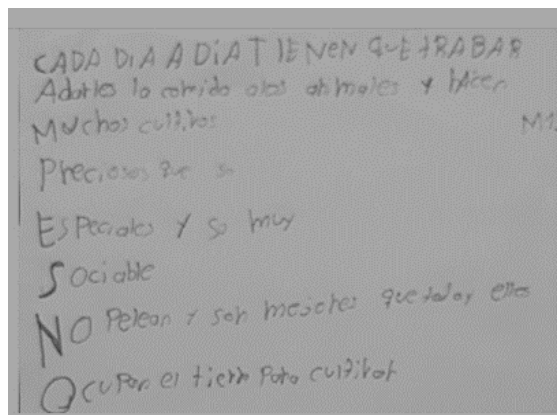 CADA DiA A DiA TIENEN QUE tRABAR
A darles la comida alos animales y hacen
Muchos cultivos
M1.
Preciosos que s
Especiales y so muy
Sociable
NO Pelean y son mejores que todoy ellos
Ocupan el tierra Para cultivar